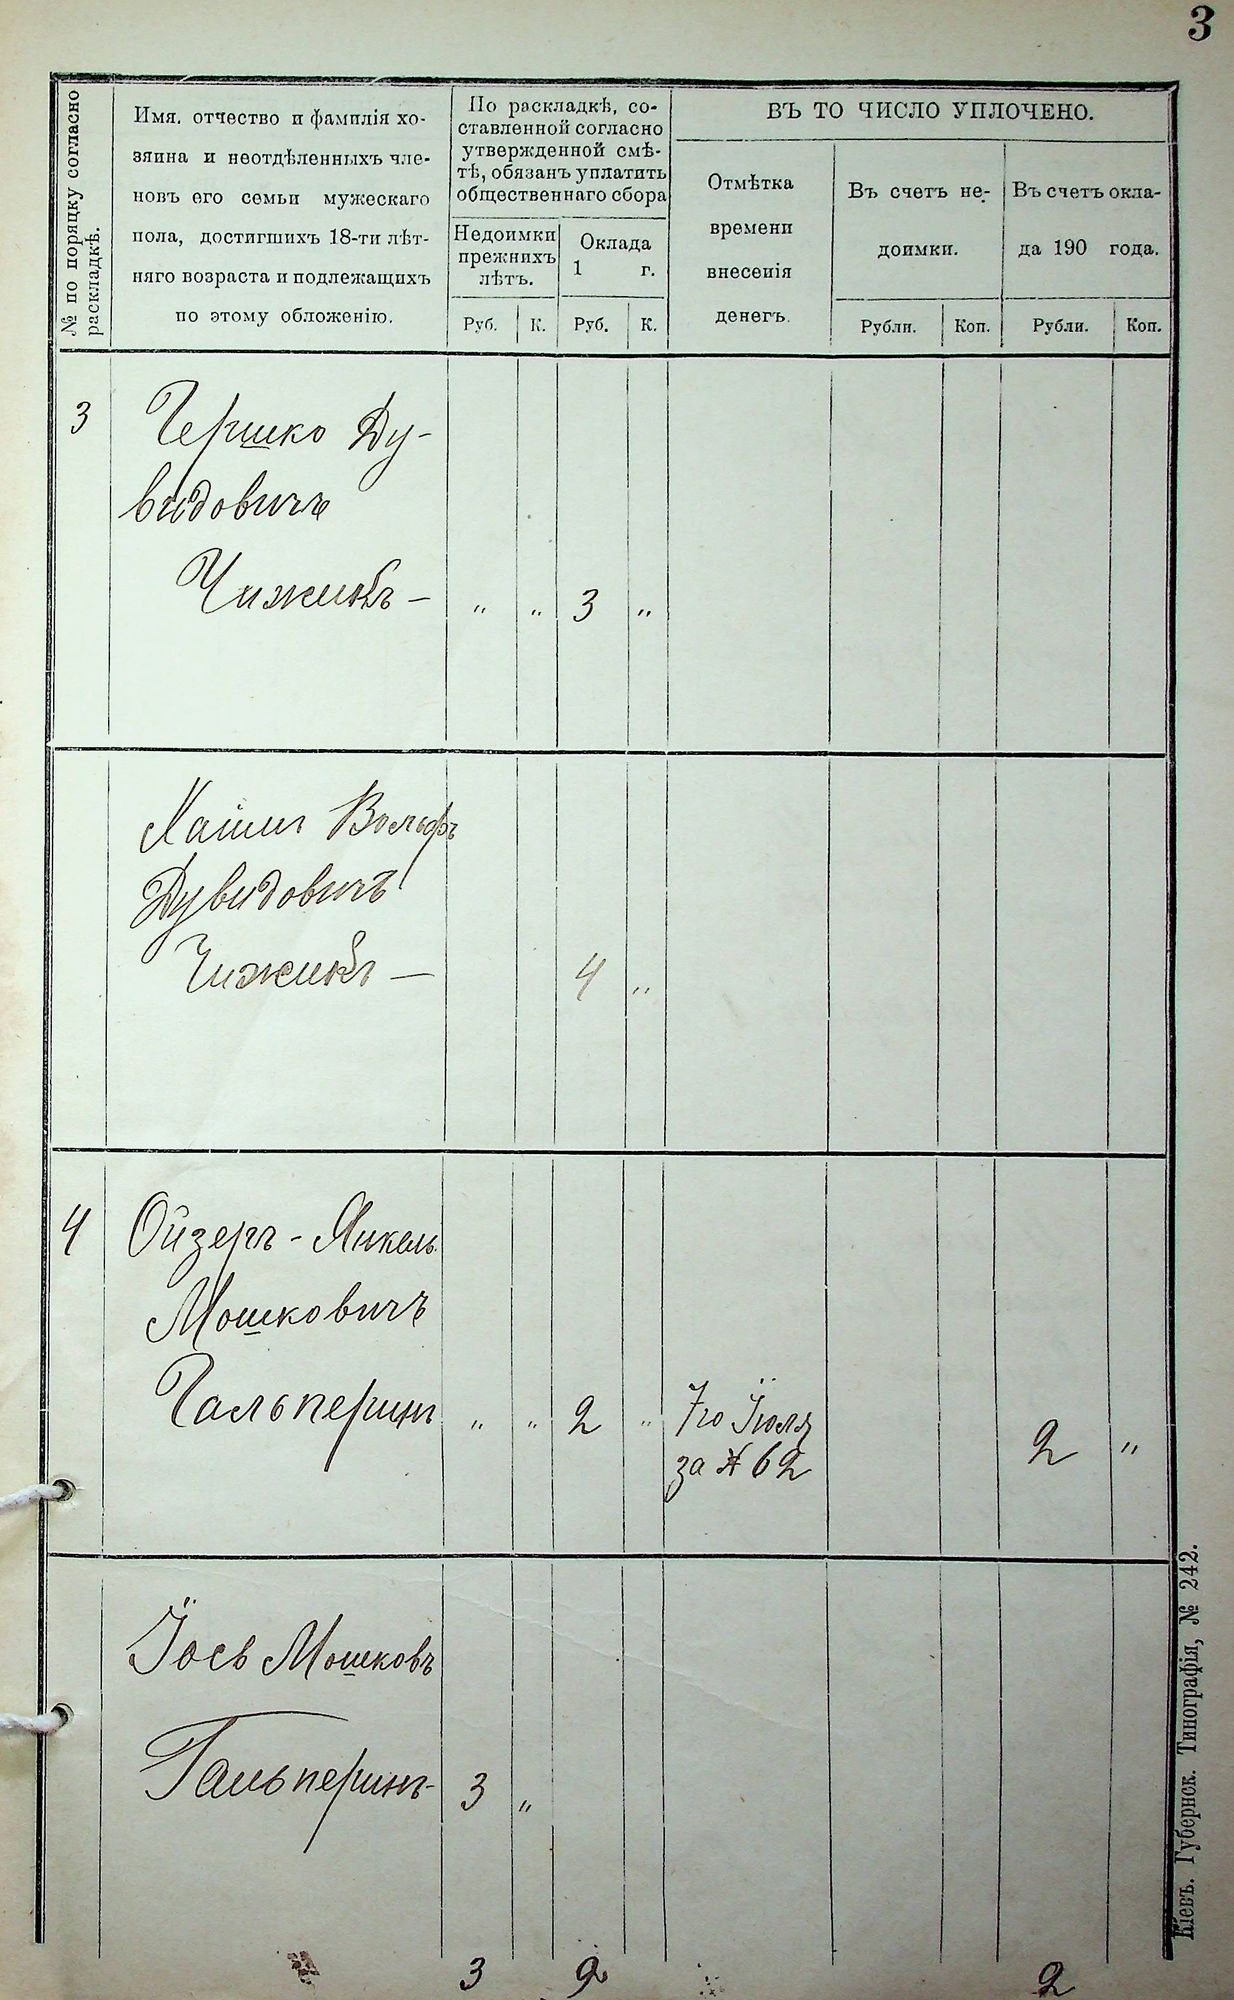 3
№ по порядку согласно
раскладкѣ.
Имя, отчество и фамилія хо-
зяина и неотдѣленныхъ чле-
новъ его семьи мужескаго
пола, достигшихъ 18-ти лѣт-
няго возраста и подлежащихъ
по этому обложенію.
По раскладкѣ, со-
ставленной согласно
утвержденной смѣ-
тѣ, обязанъ уплатить
общественнаго сбора
Недоимки
прежнихъ
лѣтъ.
Оклада
1 г.
Руб. К. Руб. К.
ВЪ ТО ЧИСЛО УПЛОЧЕНО.
Отмѣтка
времени
внесенія
денегъ.
Въ счетъ не-
доимки.
Въ счетъ окла-
да 190 года.
Рубли. Коп. Рубли. Коп.
3 Гершко Ду-
видовичъ
Чижикъ — „ „ 3 „
Хаимъ Вольфъ
Дувидовичъ
Чижикъ — 4 „
4 Ойзеръ-Янкель
Мошковичъ
Гальперинъ „ „ 2 „ 7го Іюля
за № 62 2 „
Іось Мошковъ
Гальперинъ- 3 „
3 9 2
Кіевъ. Губернск. Типографія, № 242.